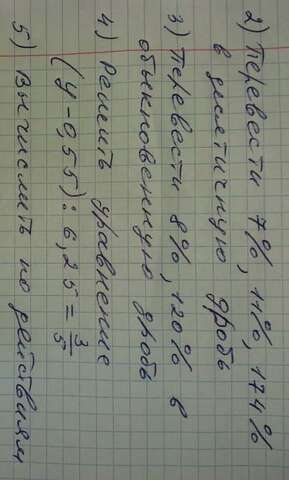 2) Перевести 7%, 11%, 174%
в десятичную дробь
3) Перевести 8%, 120% в
обыкновенную дробь
4) Решить уравнение
(y-0,55):6,25=3/5
5) Вычислить по действиям